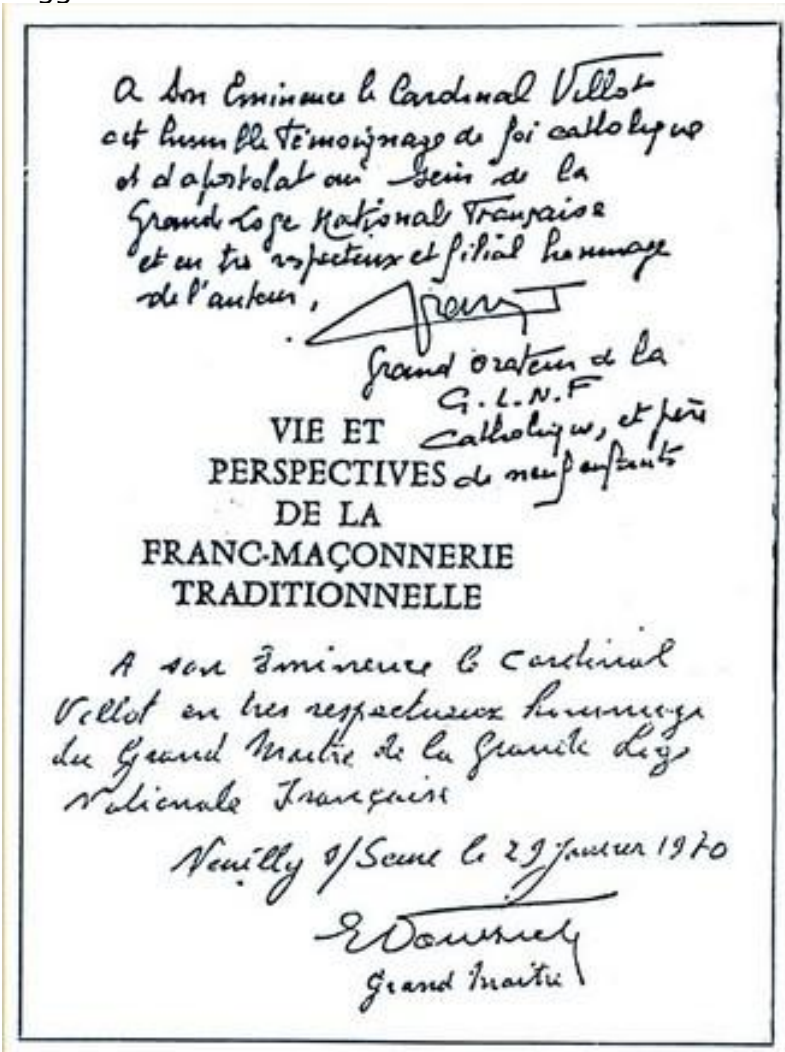 A Son Eminence le Cardinal Villot
cet humble témoignage de foi catholique
et d'apostolat au sein de la
Grande Loge National Française
et en très respectueux et filial hommage
de l'auteur,
Grand orateur de la
G.L.N.F
Catholique, et père
de neuf enfants
VIE ET
PERSPECTIVES
DE LA
FRANC-MAÇONNERIE
TRADITIONNELLE
A son Eminence le Cardinal
Villot en tres respectueux hommage
du Grand Maitre de la Grande Loge
Nationale Française
Neuilly s/Seine le 29 Janvier 1970
Grand Maitre